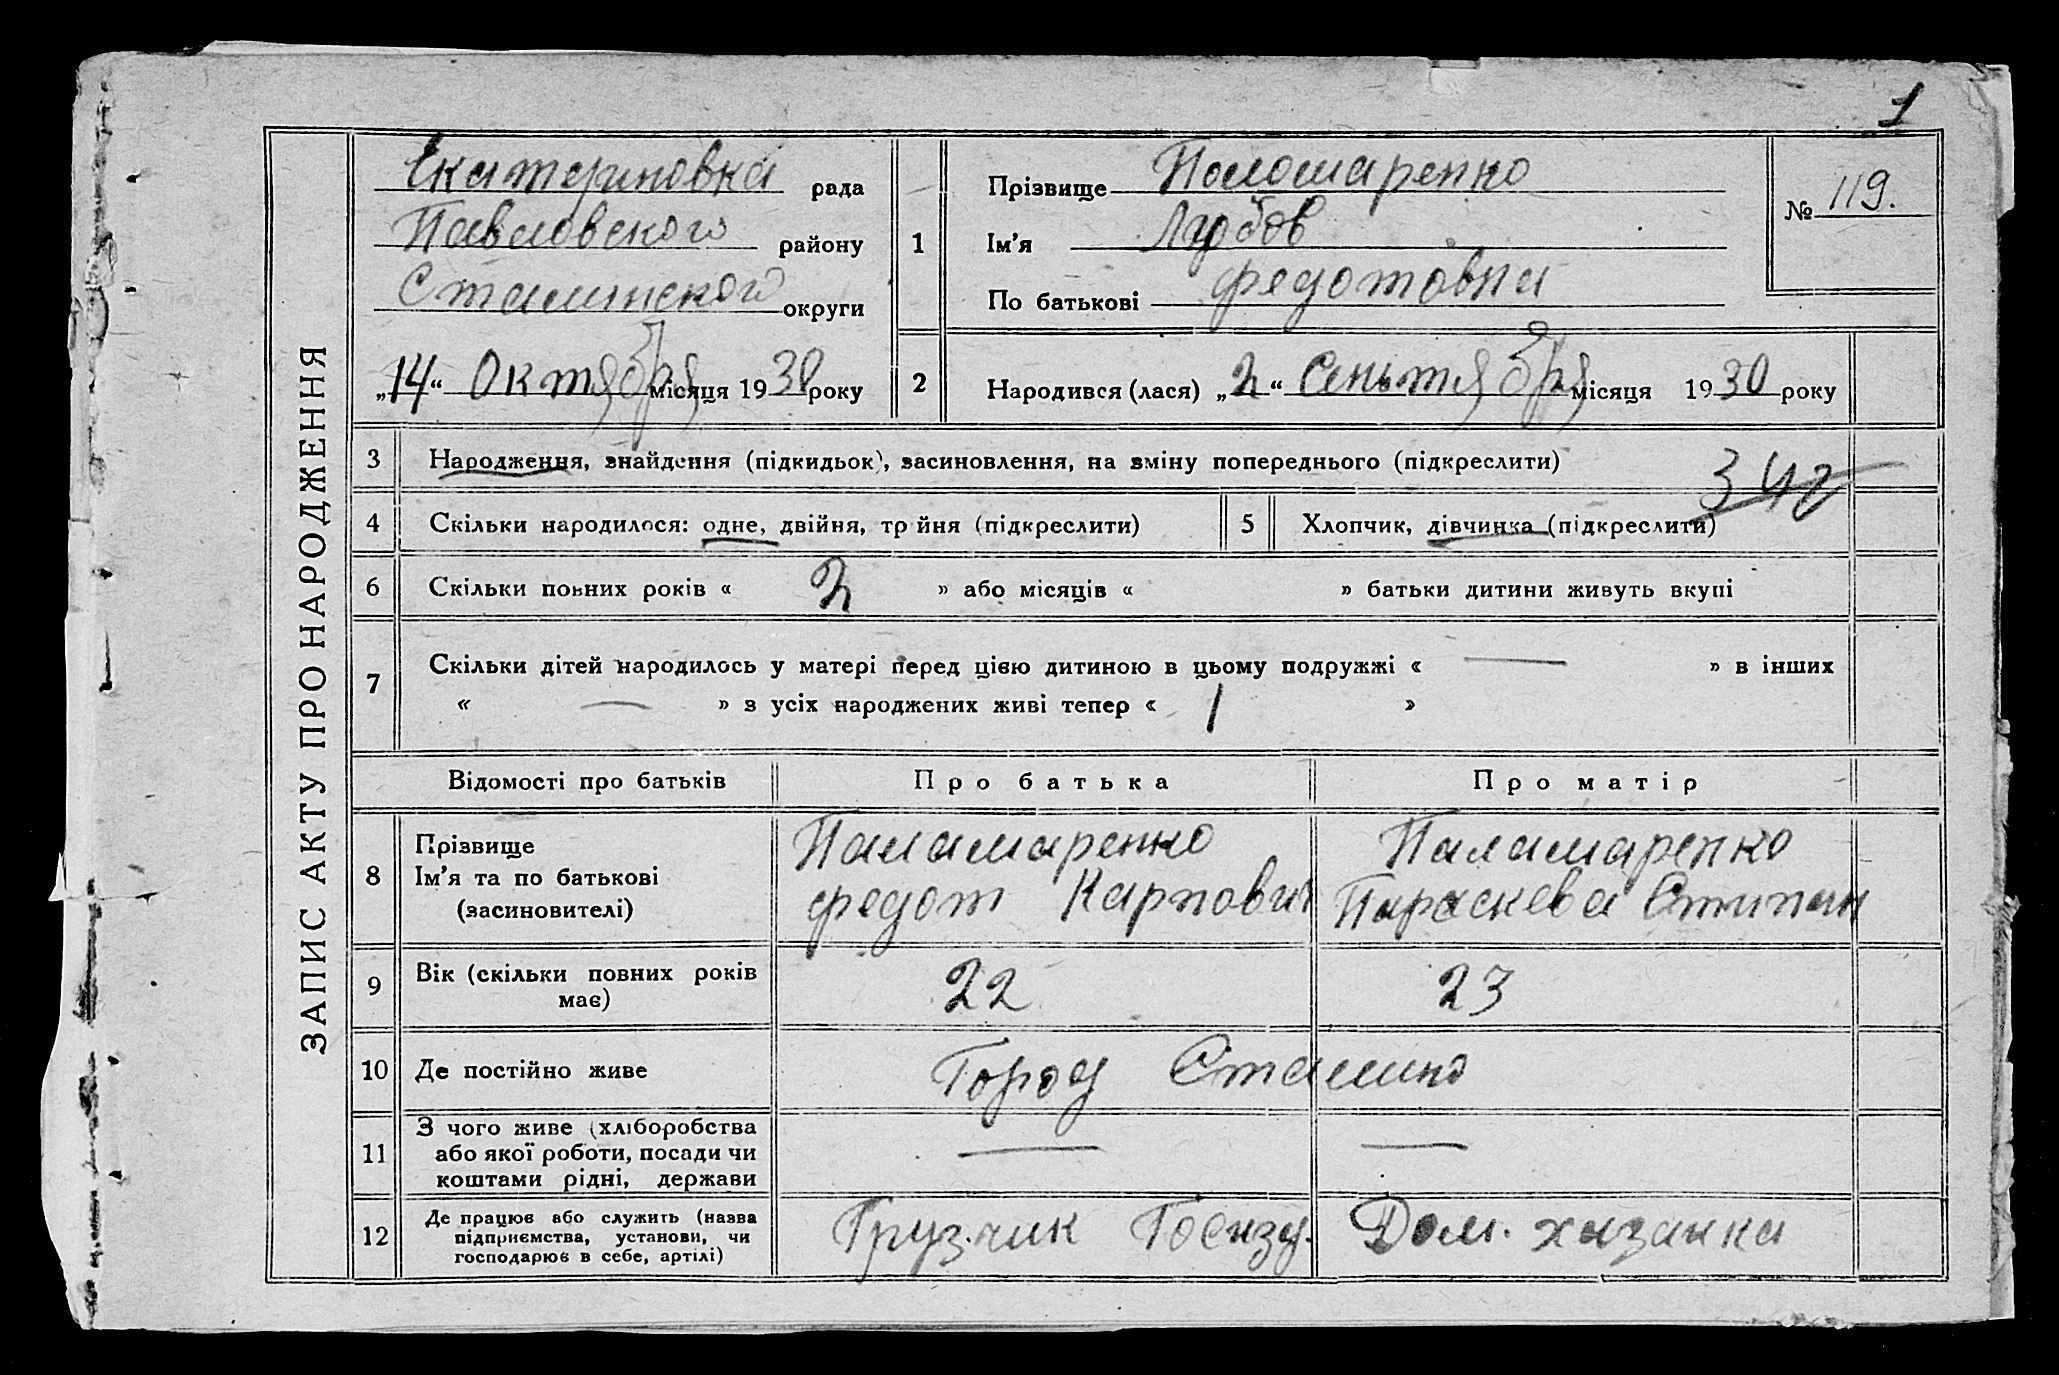 1
ЗАПИС АКТУ ПРО НАРОДЖЕННЯ
Екатериновка рада
Павловского району
Сталинского округи
„14“ Октября місяця 1930 року
1
Прізвище Поломаренко
Ім’я Любов
По батькові Федотовна
№ 119.
2
Народився (лася) „2“ Сеньтября місяця 1930 року
3 Народження, знайдення (підкидьок), засиновлення, на зміну попереднього (підкреслити)
4 Скільки народилося: одне, двійня, трійня (підкреслити)
5 Хлопчик, дівчинка (підкреслити)
6 Скільки повних років « 2 » або місяців « » батьки дитини живуть вкупі
7 Скільки дітей народилось у матері перед цією дитиною в цьому подружжі « — » в інших
« — » з усіх народжених живі тепер « 1 »
Відомості про батьків Про батька Про матір
8 Прізвище
Ім’я та по батькові
(засиновителі)
Паламаренко
Федот Карпович
Паламаренко
Параскева Стипан
9 Вік (скільки повних років
має)
22
23
10 Де постійно живе
Город Сталино
11 З чого живе (хліборобства
або якої роботи, посади чи
коштами рідні, держави
—
—
12 Де працює або служить (назва
підприємства, установи, чи
господарює в себе, артілі)
Грузчик
Дом. хазанка